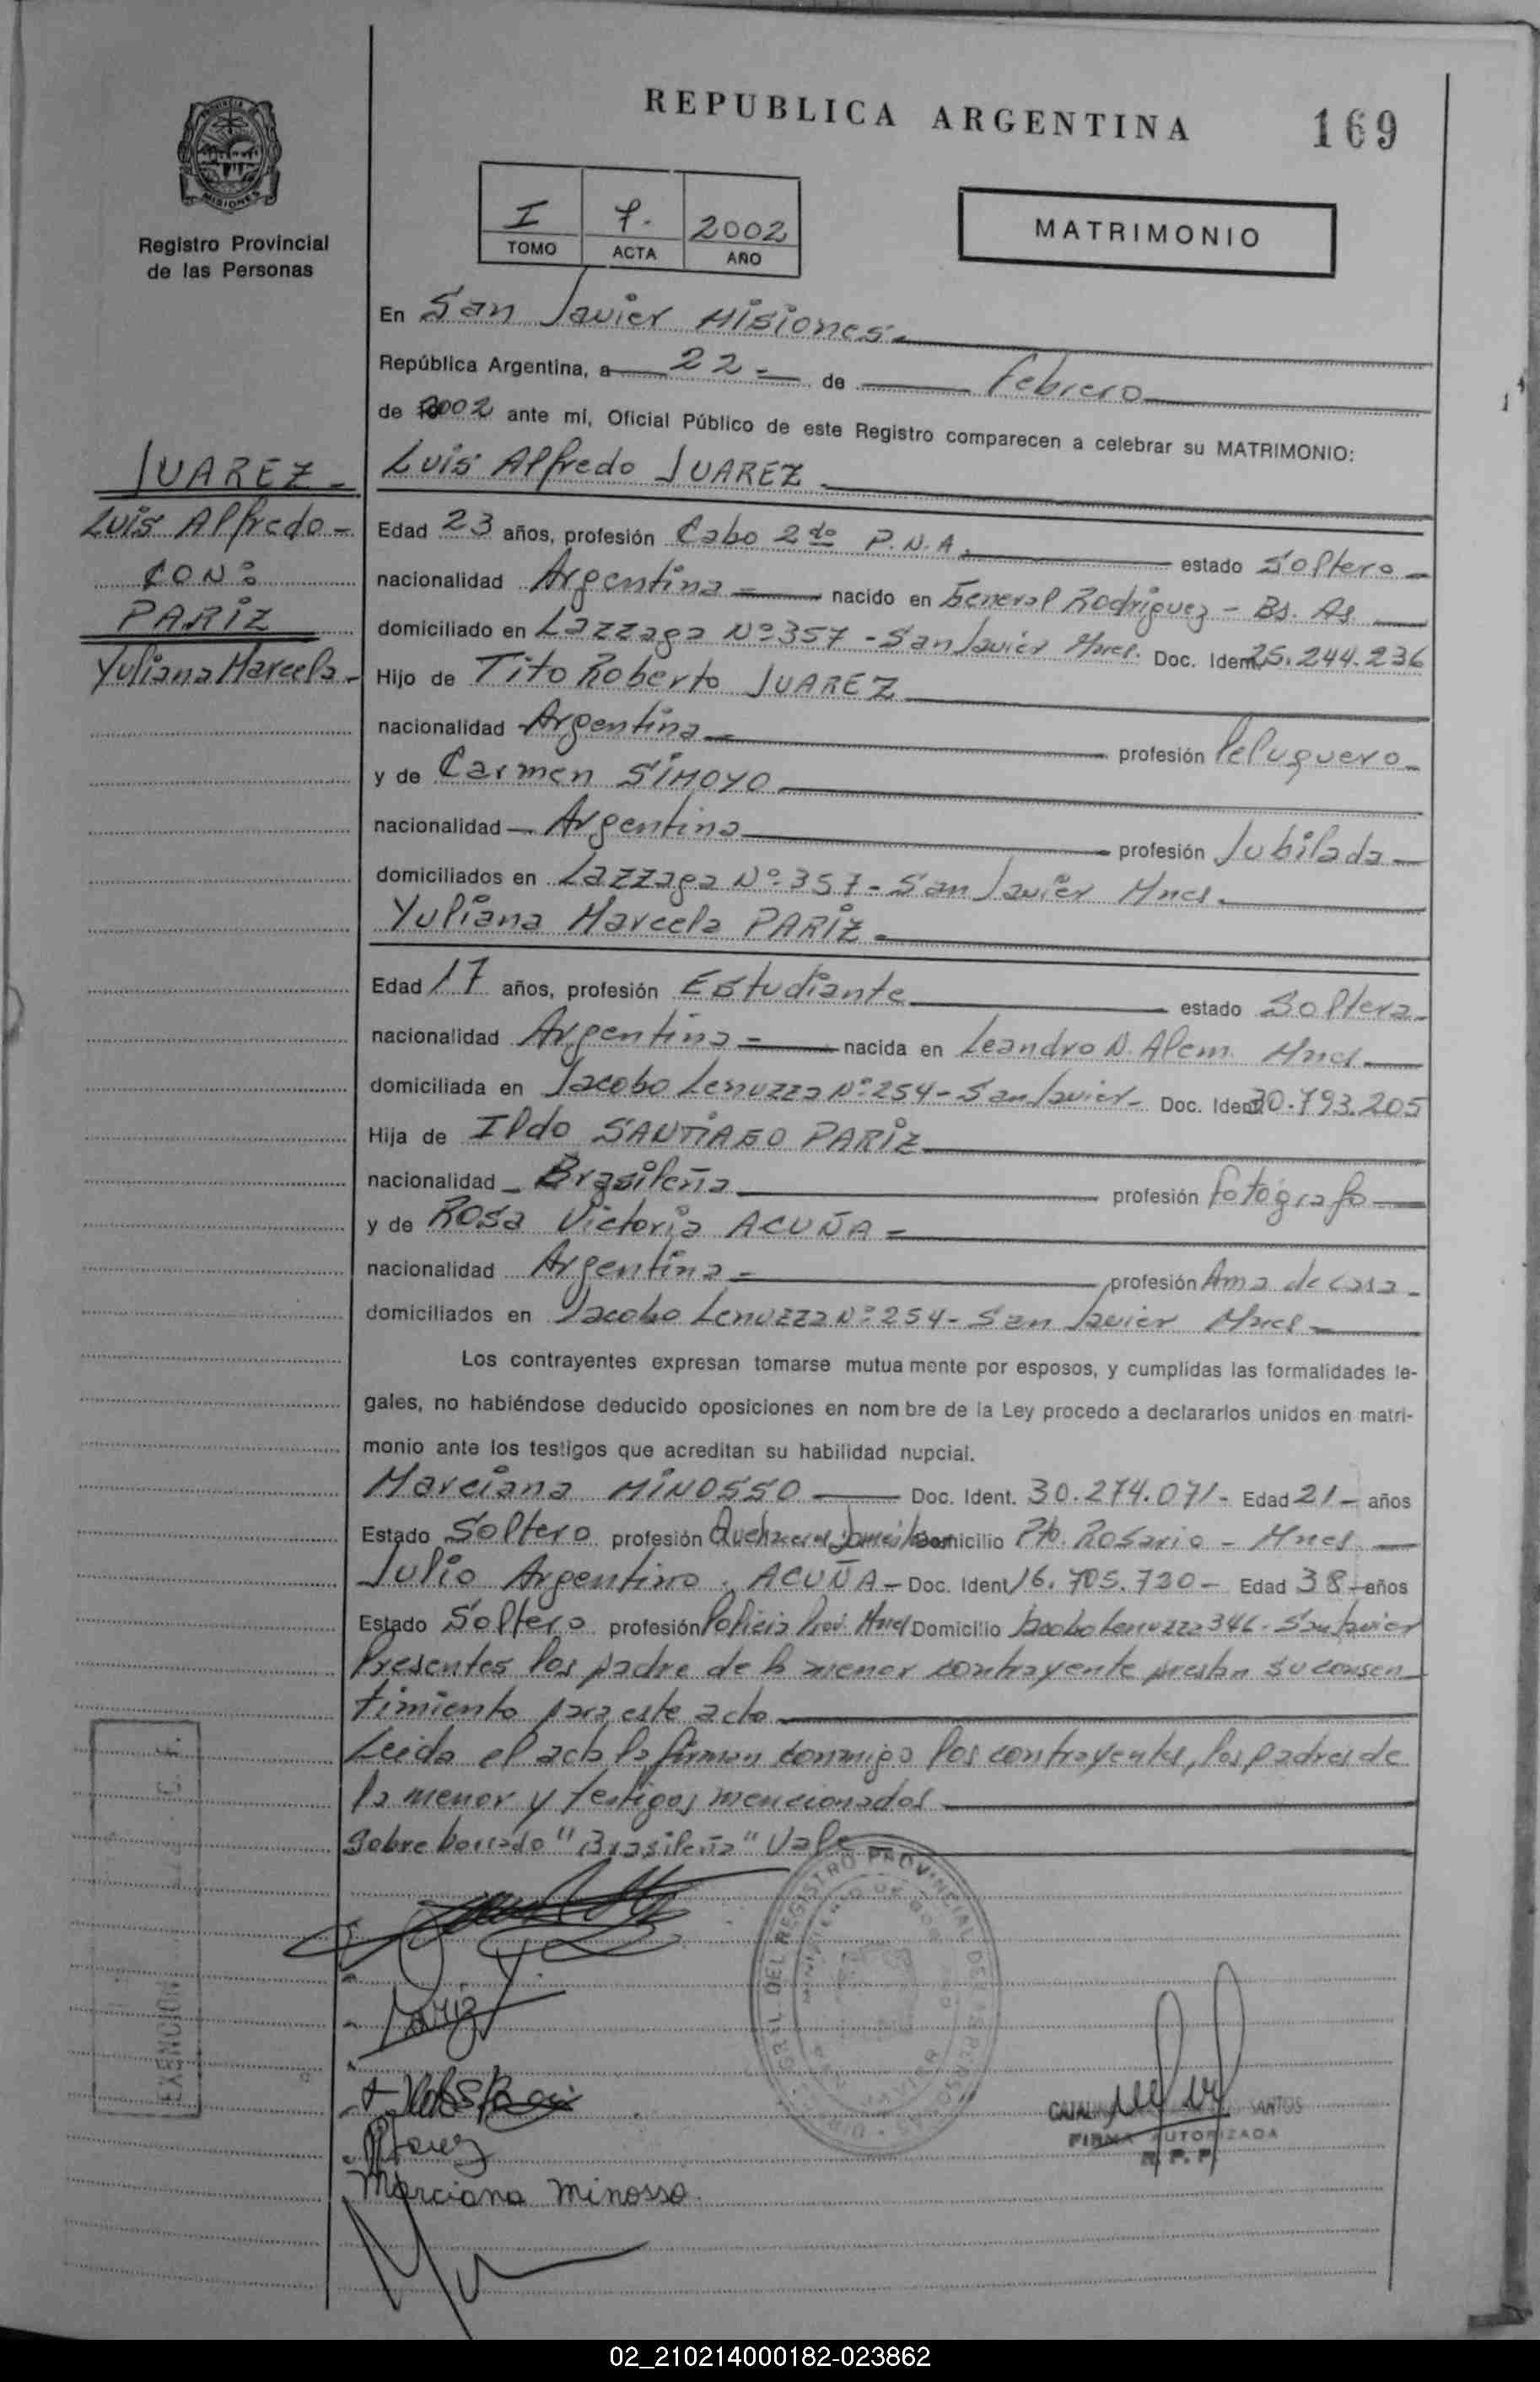 REPUBLICA ARGENTINA
169
MISIONES
Registro Provincial
de las Personas
I 7. 2002
TOMO ACTA AÑO
MATRIMONIO
En San Javier Misiones
República Argentina, a 22 de Febrero
de 2002 ante mí, Oficial Público de este Registro comparecen a celebrar su MATRIMONIO:
JUAREZ
Luis Alfredo
CON:
PARIZ
Yuliana Marcela
Luis Alfredo JUAREZ
Edad 23 años, profesión Cabo 2do P.N.A. estado Soltero
nacionalidad Argentina nacido en General Rodriguez - Bs. As.
domiciliado en Lazzaga Nº 357 - San Javier Mnes. Doc. Ident. 25.244.236
Hijo de Tito Roberto JUAREZ
nacionalidad Argentina profesión Peluquero
y de Carmen SIMOYO
nacionalidad Argentina profesión Jubilada
domiciliados en Lazzaga Nº 357 - San Javier Mnes.
Yuliana Marcela PARIZ
Edad 17 años, profesión Estudiante estado Soltera
nacionalidad Argentina nacida en Leandro N. Alem. Mnes
domiciliada en Jacobo Lenuzza Nº 254 - San Javier Doc. Ident. 30.793.205
Hija de Ildo SANTIAGO PARIZ
nacionalidad Brasileña profesión Fotógrafo
y de Rosa Victoria ACUÑA
nacionalidad Argentina profesión Ama de casa
domiciliados en Jacobo Lenuzza Nº 254 - San Javier Mnes
Los contrayentes expresan tomarse mutua mente por esposos, y cumplidas las formalidades le-
gales, no habiéndose deducido oposiciones en nom bre de la Ley procedo a declararlos unidos en matri-
monio ante los testigos que acreditan su habilidad nupcial.
Marciana MINOSSO Doc. Ident. 30.274.071 - Edad 21 - años
Estado Soltero profesión Quehaceres Domést. Domicilio Pto. Rosario - Mnes.
Julio Argentino ACUÑA - Doc. Ident 16.705.730 - Edad 38 - años
Estado Soltero profesión Policia Prov. Mnes Domicilio Jacobo Lenuzza 346 - San Javier
Presentes los padre de la menor contrayente prestan su consen
timiento para este acto
Leida el acta la firman conmigo los contrayentes, los padres de
la menor y testigos mencionados
Sobre borrado "Brasileña" Vale
REGISTRO PROVINCIAL DE LAS PERSONAS
Pariz
Marciana Minosso
SANTOS
FIRMA AUTORIZADA
R. P. P.
EXENCION
02_210214000182-023862